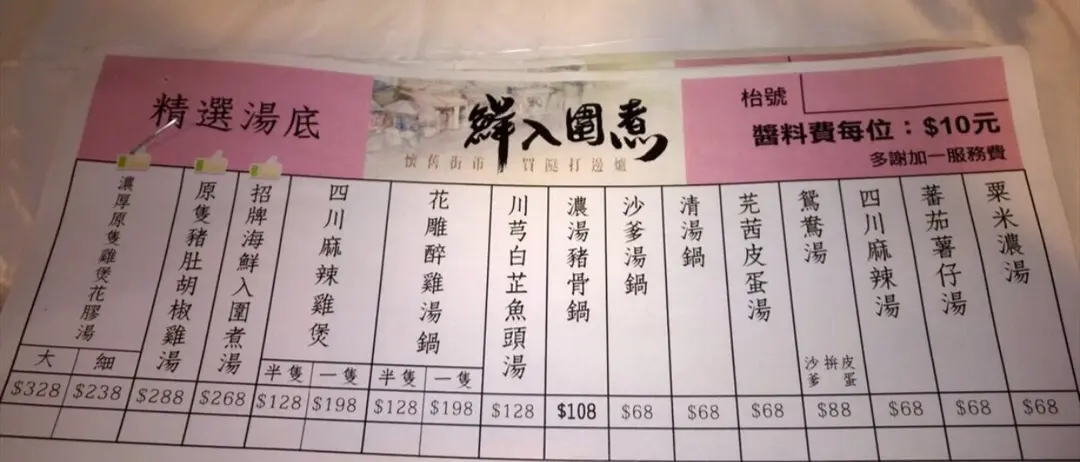 精選湯底
鮮入圍煮
懷舊街市 買餸打邊爐
枱號
醬料費每位：$10元
多謝加一服務費
濃厚原隻雞煲花膠湯
大 細
$328 $238
原隻豬肚胡椒雞湯
$288
招牌海鮮入圍煮湯
$268
四川麻辣雞煲
半隻 一隻
$128 $198
花雕醉雞湯鍋
半隻 一隻
$128 $198
川芎白芷魚頭湯
$128
濃湯豬骨鍋
$108
沙爹湯鍋
$68
清湯鍋
$68
芫茜皮蛋湯
$68
鴛鴦湯
沙爹拚皮蛋
$88
四川麻辣湯
$68
蕃茄薯仔湯
$68
粟米濃湯
$68